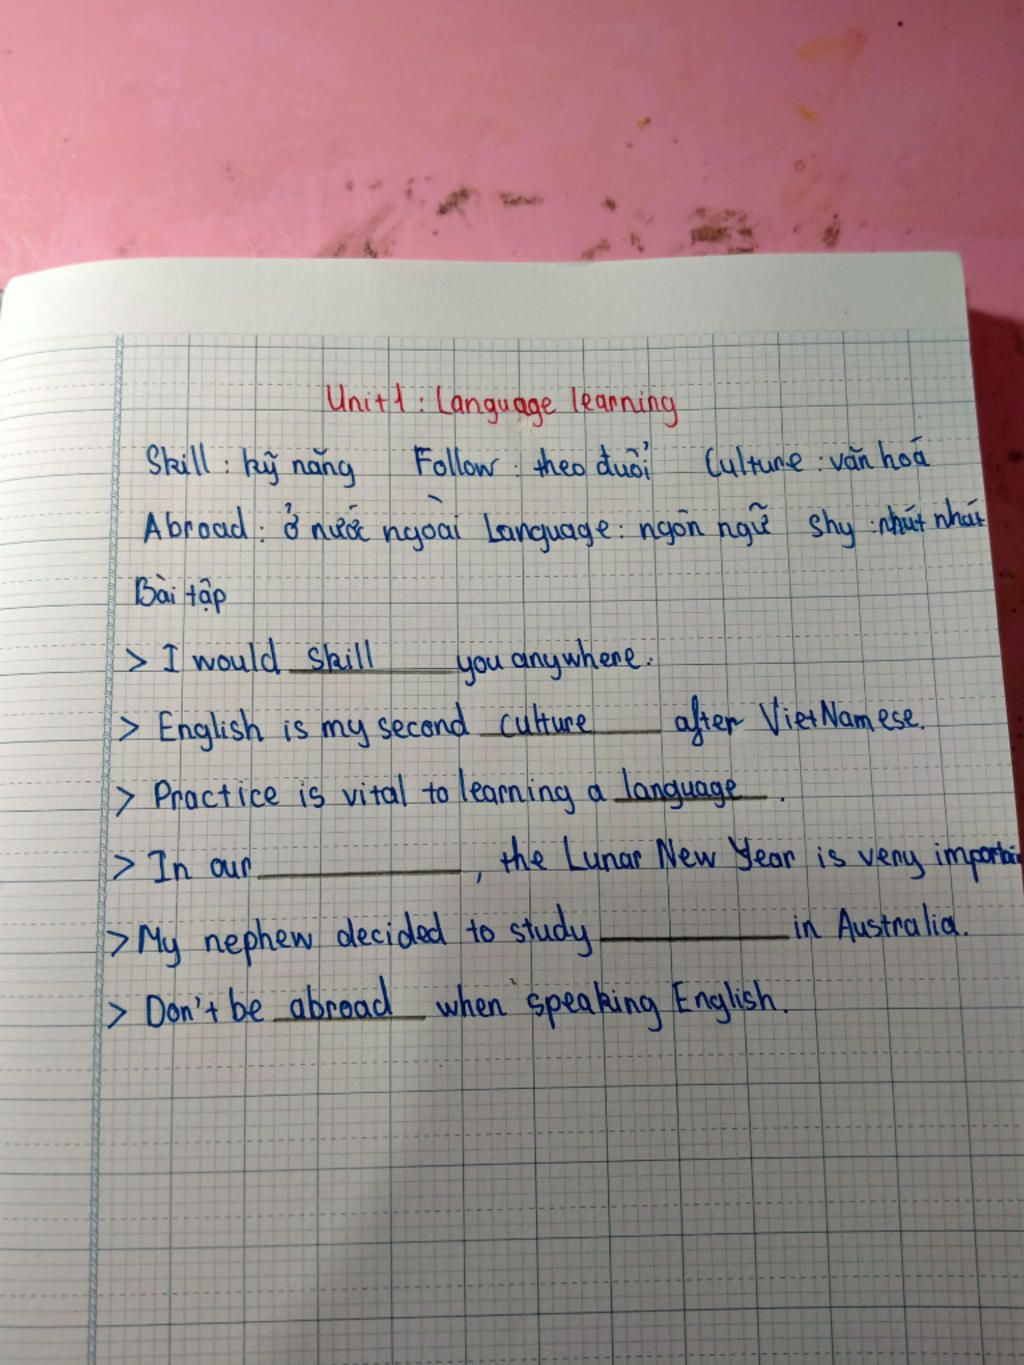 Unit 1 : Language learning
Skill : kỹ năng Follow : theo đuổi Culture : văn hoá
Abroad : ở nước ngoài Language : ngôn ngữ shy : nhút nhát
Bài tập
> I would skill you anywhere.
> English is my second culture after VietNamese.
> Practice is vital to learning a language .
> In our ________ , the Lunar New Year is very
> My nephew decided to study ________ in Australia.
> Don't be abroad when speaking English.